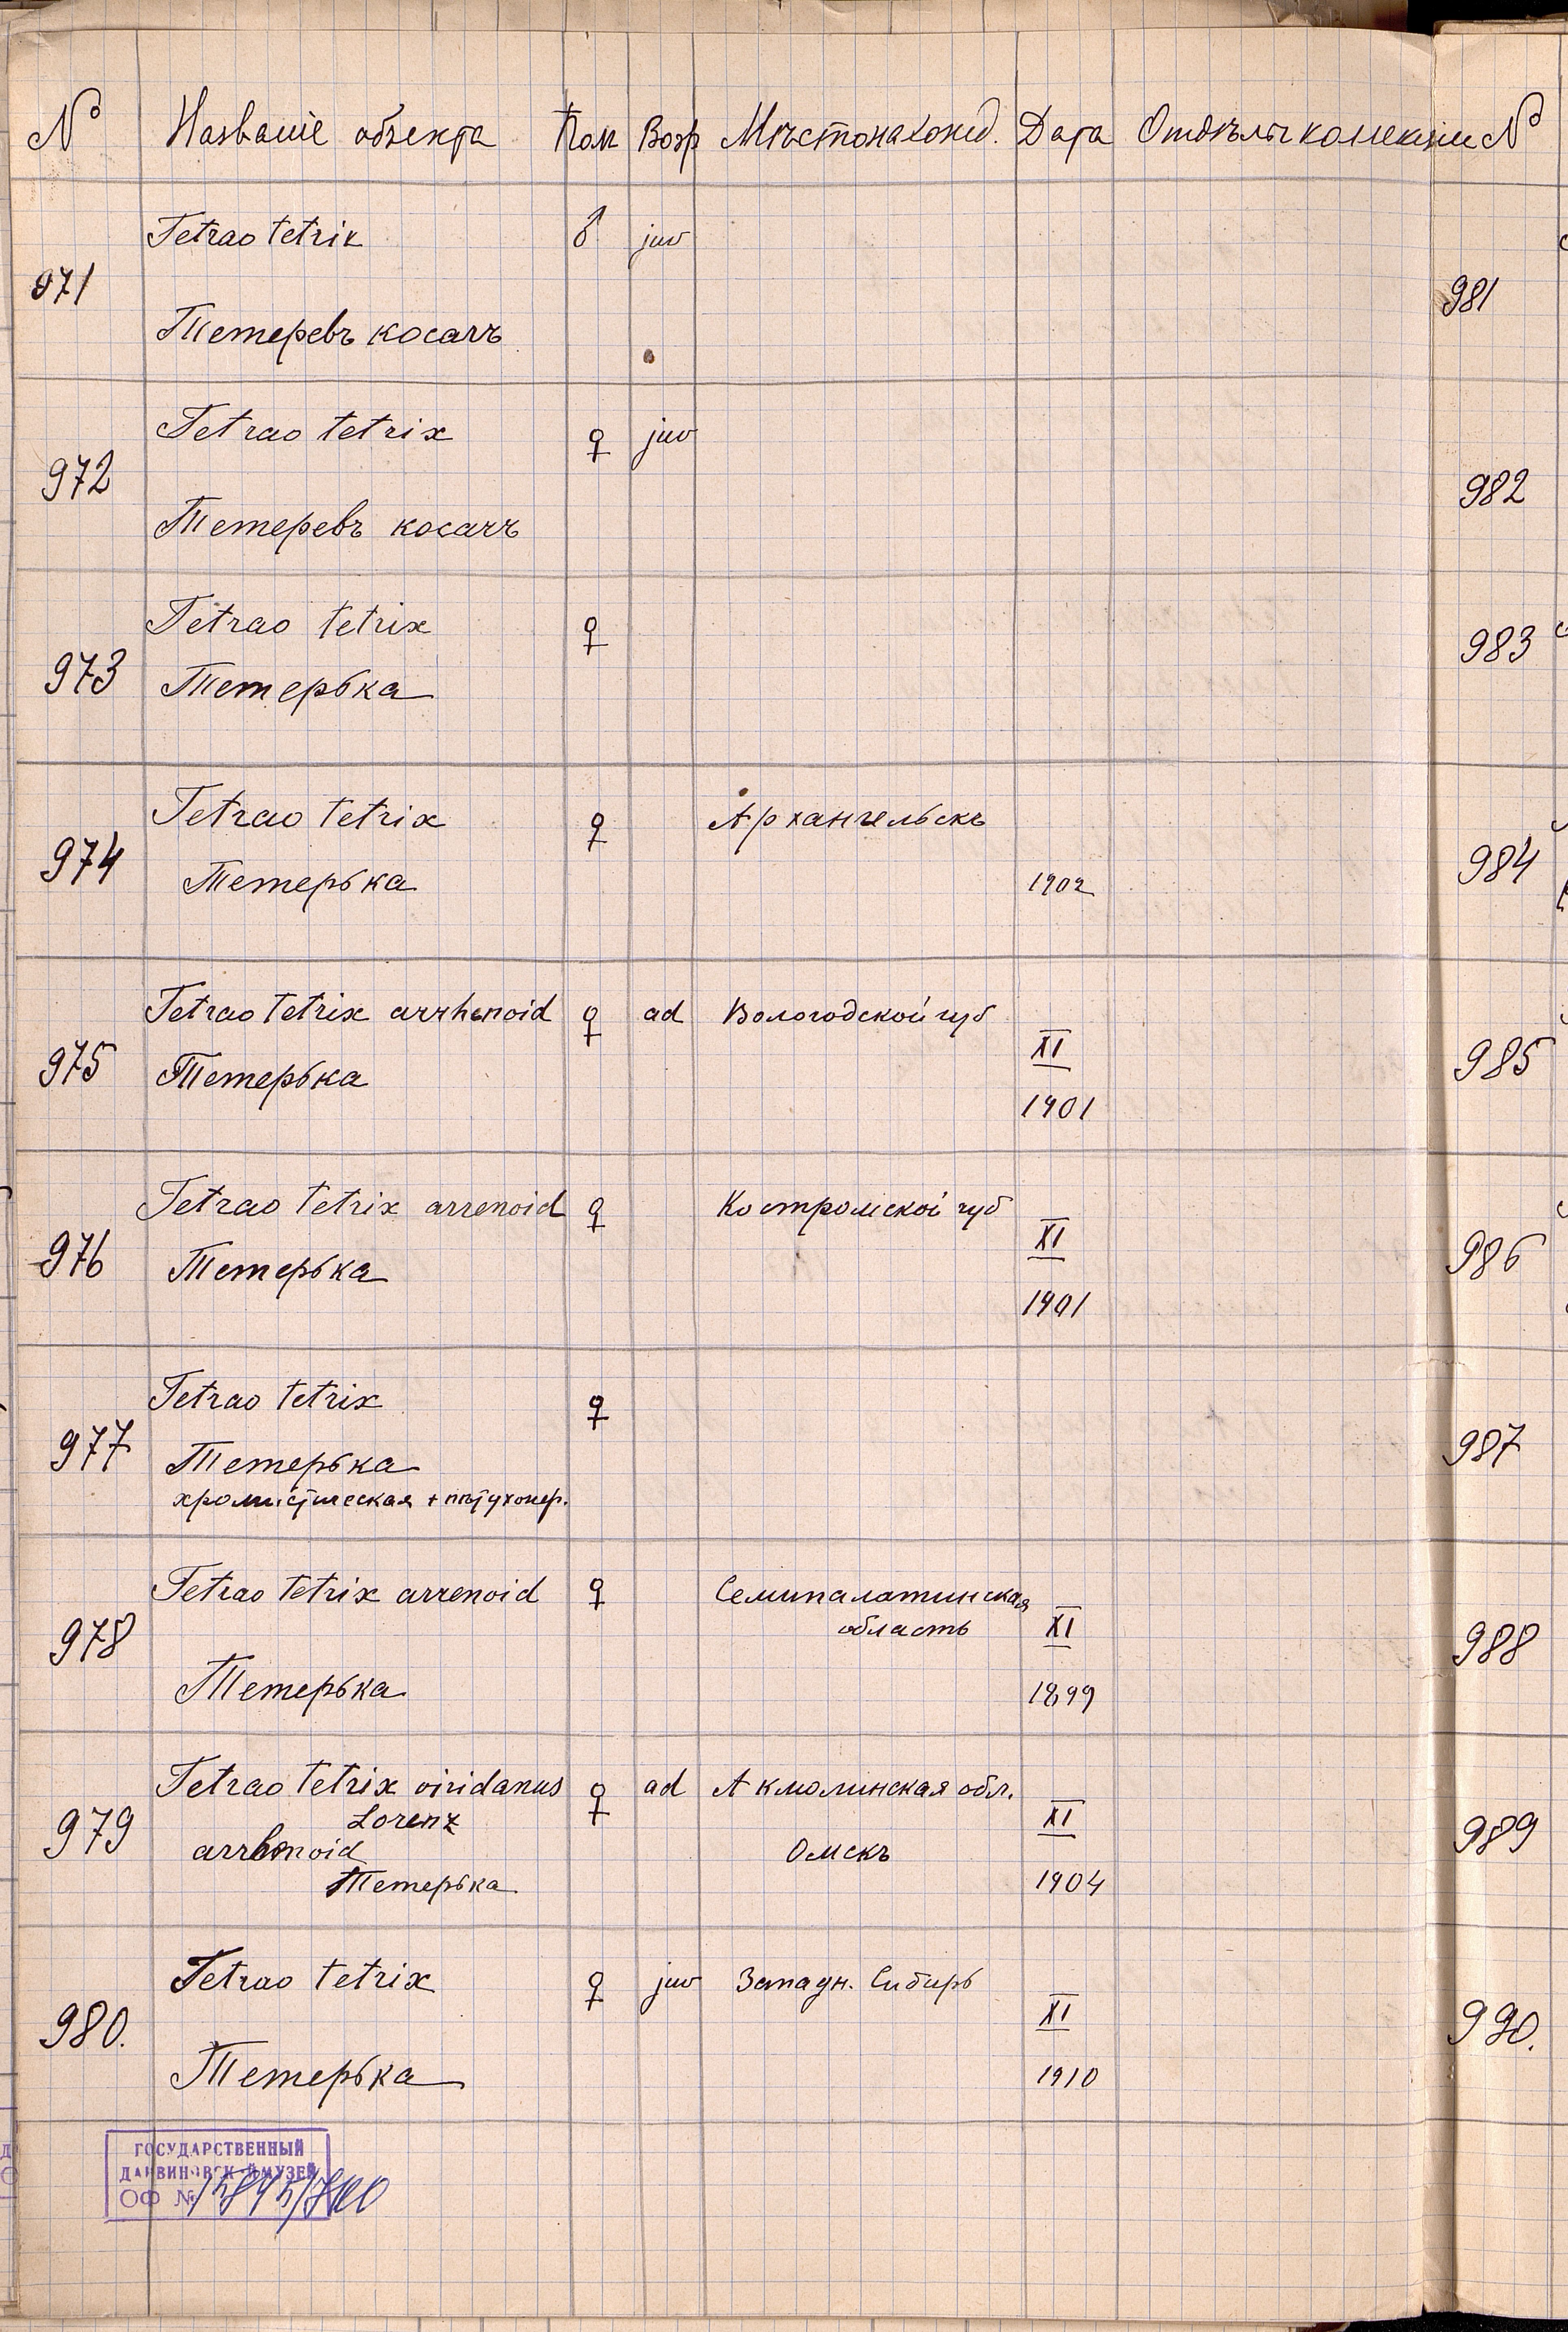 № Названіе объекта Пол Возр Мѣстонахожд. Дата Отдѣлы коллекціи №
Tetrao tetrix ♂ juv
971 981
Тетеревъ косачъ
Tetrao tetrix ♀ juv
972 982
Тетеревъ косачъ
Tetrao tetrix ♀
973 Тетерька 983
Tetrao tetrix ♀ Архангельскъ
974 Тетерька 1902 984
Tetrao tetrix arrhenoid ♀ ad Вологодской губ
XI
975 Тетерька 985
1901
Tetrao tetrix arrenoid ♀ Костромской губ
XI
976 Тетерька 986
1901
Tetrao tetrix ♀
977 Тетерька 987
хромистическая + пѣтухопер.
Tetrao tetrix arrenoid ♀ Семипалатинская
978 область XI 988
Тетерька 1899
Tetrao tetrix viridanus ♀ ad Акмолинская обл.
Lorenz XI
979 arrhenoid Омскъ 989
Тетерька 1904
Tetrao tetrix ♀ juv Западн. Сибирь
XI
980. 990.
Тетерька 1910
ГОСУДАРСТВЕННЫЙ
ДАРВИНОВСКИЙ МУЗЕЙ
ОФ №